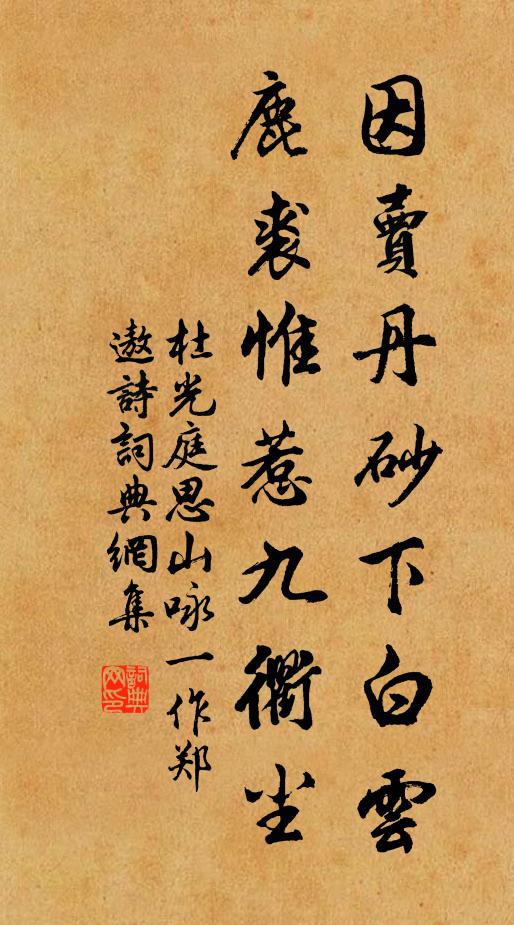 因賣丹砂下白雲
鹿裘惟惹九衢尘
杜光庭思山咏一作郑
遨詩詞典網集
詞典
网印